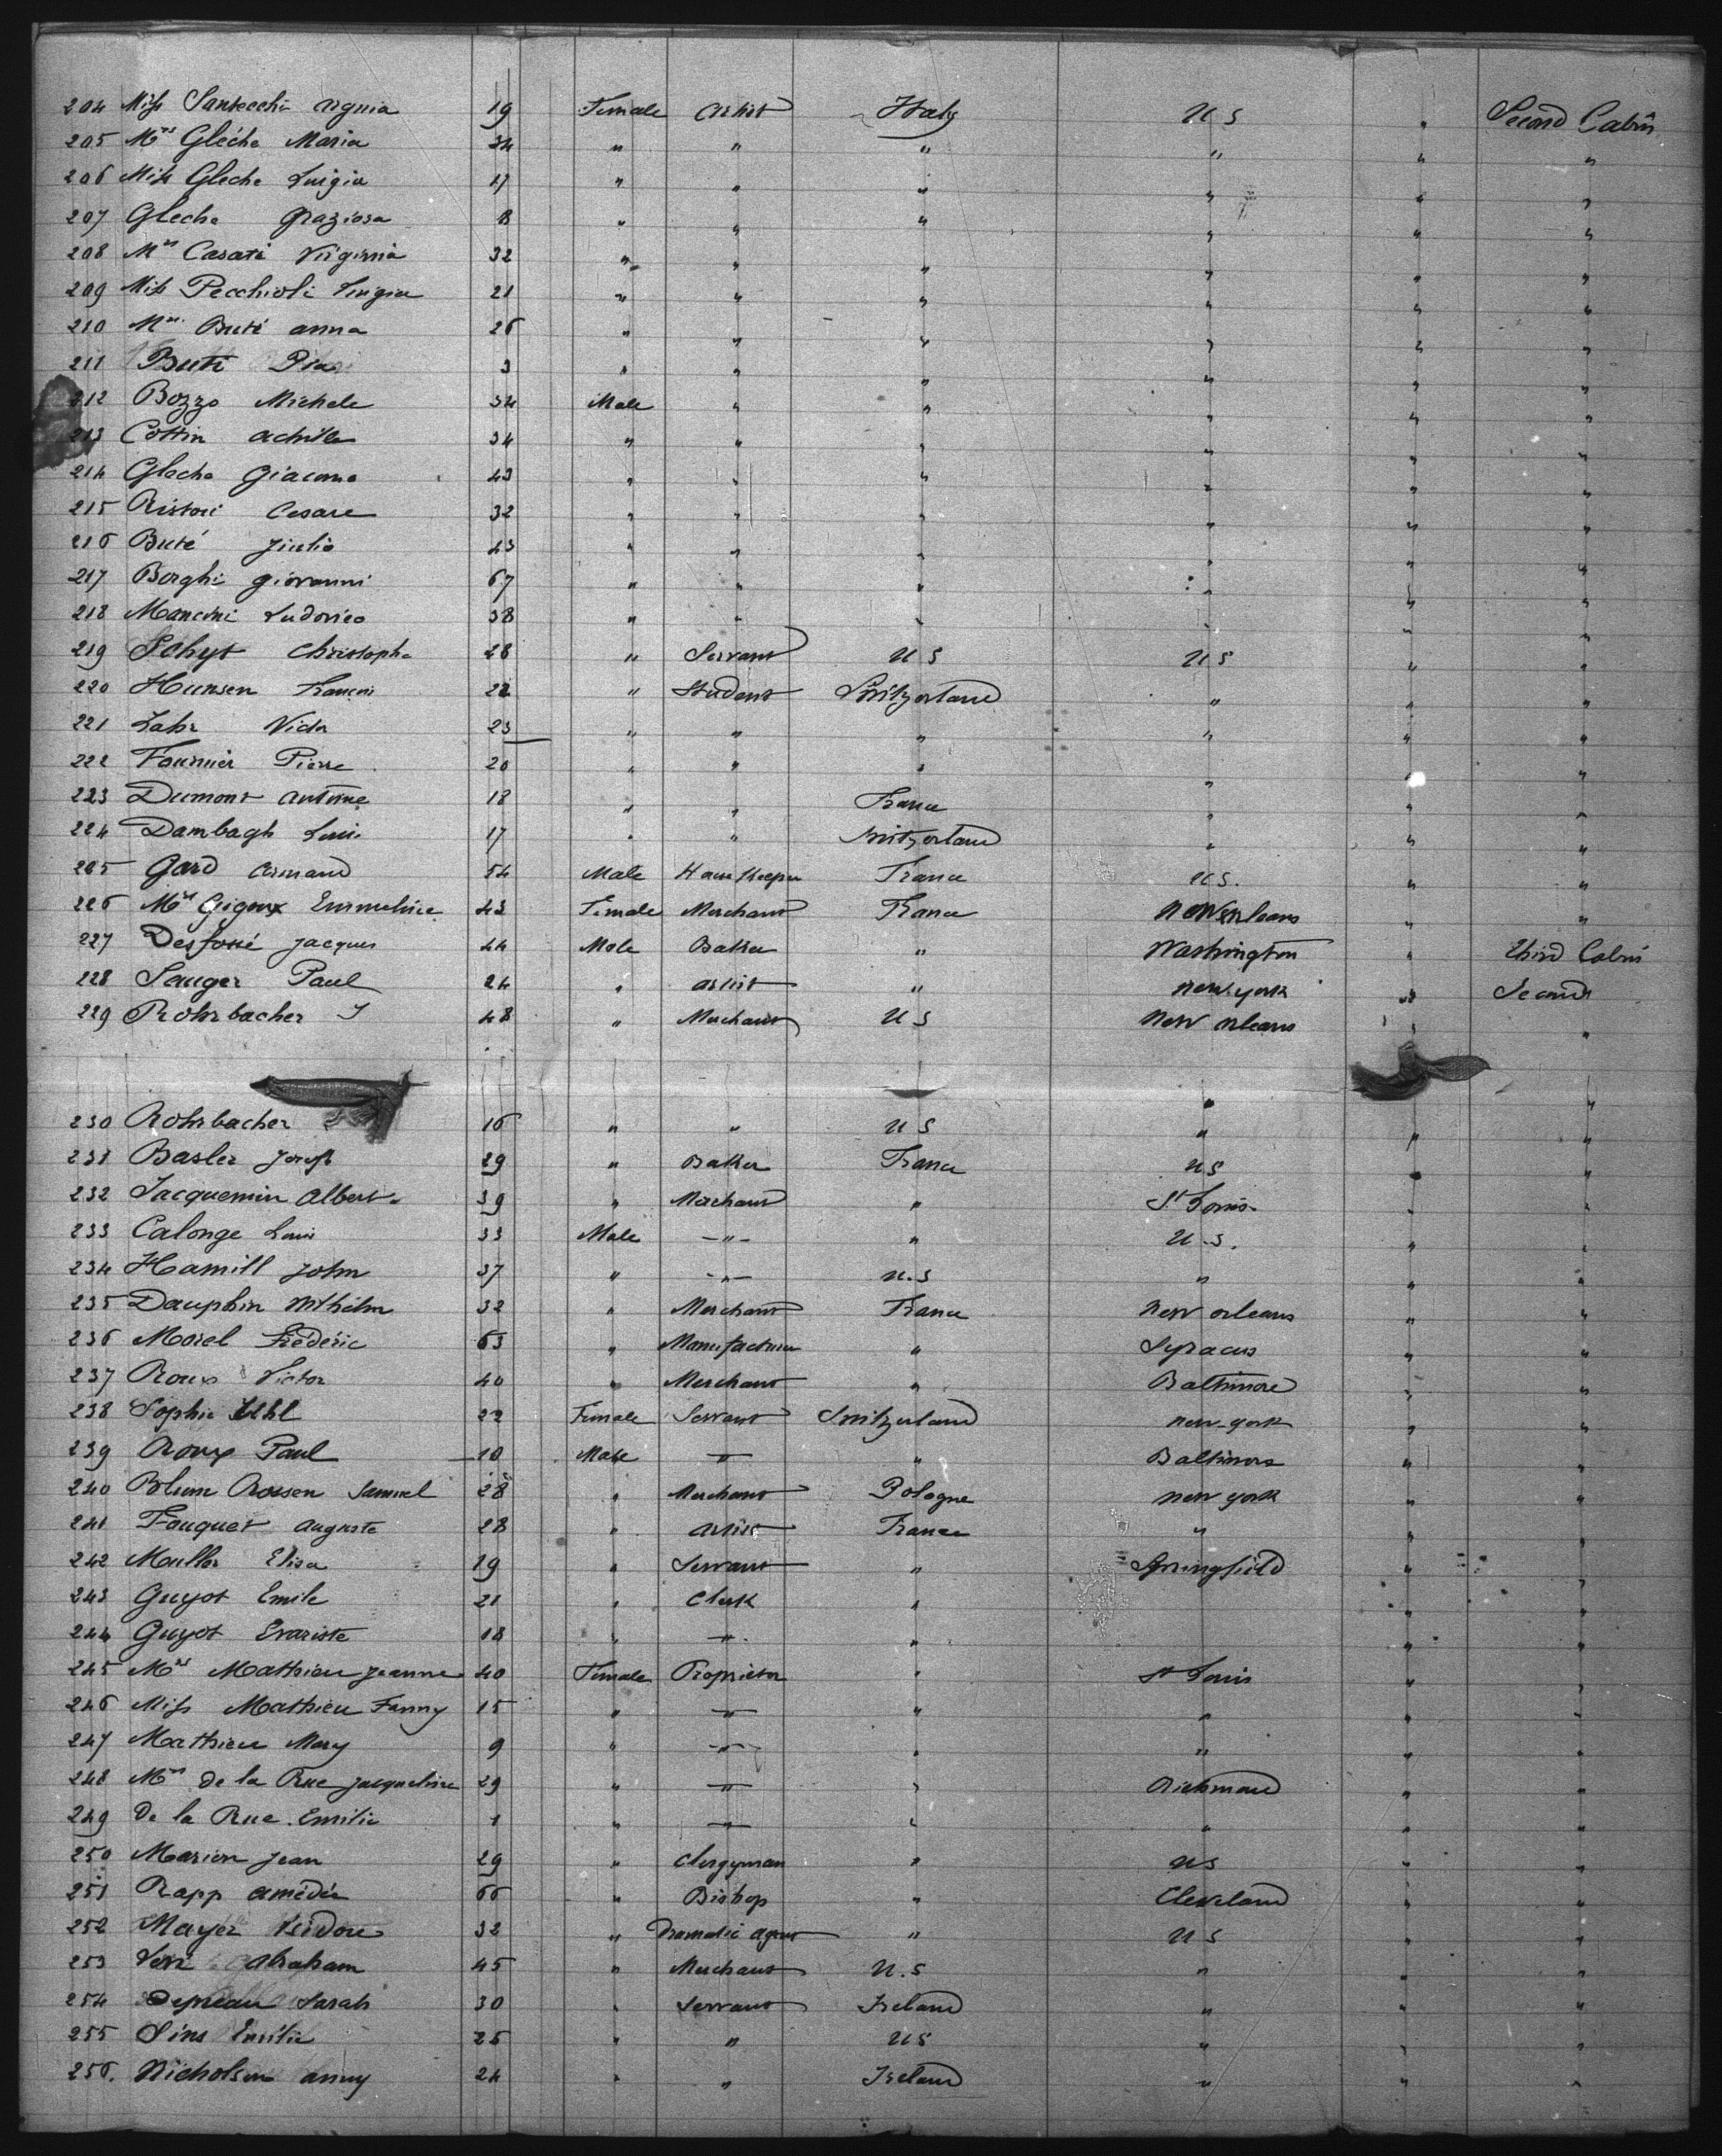 204 Miss Santecchi Argnia 19 Female Artist Italy U S " Second Cabin
205 Mrs Gléche Maria 34 " " " " " "
206 Miss Gleche Luigia 17 " " " " " "
207 Gleche Graziosa 8 " " " " " "
208 Mrs Casati Virginia 32 " " " " " "
209 Miss Pecchioli Luigia 21 " " " " " "
210 Mrs Buti anna 26 " " " " " "
211 Buti Pia 3 " " " " " "
212 Bozzo Michele 34 Male " " " " "
213 Cottin Achille 34 " " " " " "
214 Gleche Giacomo 43 " " " " " "
215 Ristori Cesare 32 " " " " " "
216 Buté Julio 43 " " " " " "
217 Borghi Giovanni 67 " " " " " "
218 Mancini Ludovico 38 " " " " " "
219 Schyt Christophe 28 " Servant U S U S " "
220 Hunsen Francois 22 " Student Switzerland " " "
221 Lahr Victor 23 " " " " " "
222 Fournier Pierre 20 " " " " " "
223 Dumont Antoine 18 " " France " " "
224 Dambagh Louis 17 " " Switzerland " " "
225 Gard Armand 54 Male House Keeper France U S. " "
226 Mrs Gigoux Emmeline 43 Female Merchant France New orleans " "
227 Desfossé Jacques 44 Male Baker " Washington " third Cabin
228 Sauger Paul 24 " artist " new-york " Second
229 Rohrbacher J 48 " Merchant U S New orleans " "
230 Rohrbacher 16 " " U S " " "
231 Basler Joseph 29 " Baker France U S " "
232 Jacquemin Albert 39 " Merchant " St Louis " "
233 Calonge Louis 33 Male -"- " U.S. " "
234 Hamill John 37 " -"- U.S " " "
235 Dauphin Wilhelm 32 " Merchant France New orleans " "
236 Morel Fréderic 63 " Manufacturer " Syracus " "
237 Roux Victor 40 " Merchant " Baltimore " "
238 Sophie 22 Female Servant Switzerland new-york " "
239 Roux Paul 10 Male -"- " Baltimore " "
240 Blum Rossen Samuel 28 " Merchant Pologne new york " "
241 Fouquet Auguste 28 " artist France " " "
242 Muller Elisa 19 " Servant " Springfield " "
243 Guyot Emile 21 " Clerk " " "
244 Guyot Evariste 18 " -"- " " "
245 Mrs Mathieu Jeanne 40 Female Proprietor " St Louis " "
246 Miss Mathieu Fanny 15 " -"- " " " "
247 Mathieu Mary 9 " -"- " " " "
248 Mrs de la Rue Jacqueline 29 " -"- " Richmond " "
249 De la Rue. Emilie 1 " -"- " " " "
250 Marion Jean 29 " Clergyman " U S " "
251 Rapp Amédée 66 " Bishop " Cleveland " "
252 Mayer Isidore 32 " Dramatic agent " U S " "
253 Levi Abraham 45 " Merchant U.S " " "
254 Sarah 30 " Servant Ireland " " "
255 Sins Emilie 25 " " U S " " "
256. Nicholson Anny 24 " " Ireland " " "